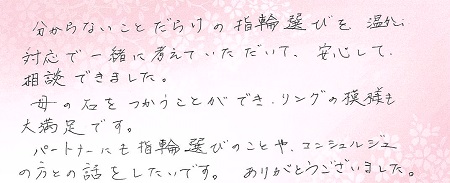 分からないことだらけの指輪選びを 温かい
対応で一緒に考えていただいて、安心して、
相談できました。
母の石をつかうことができ、リングの模様も
大満足です。
パートナーにも指輪選びのことや、コンシェルジュ
の方との話をしたいです。 ありがとうございました。